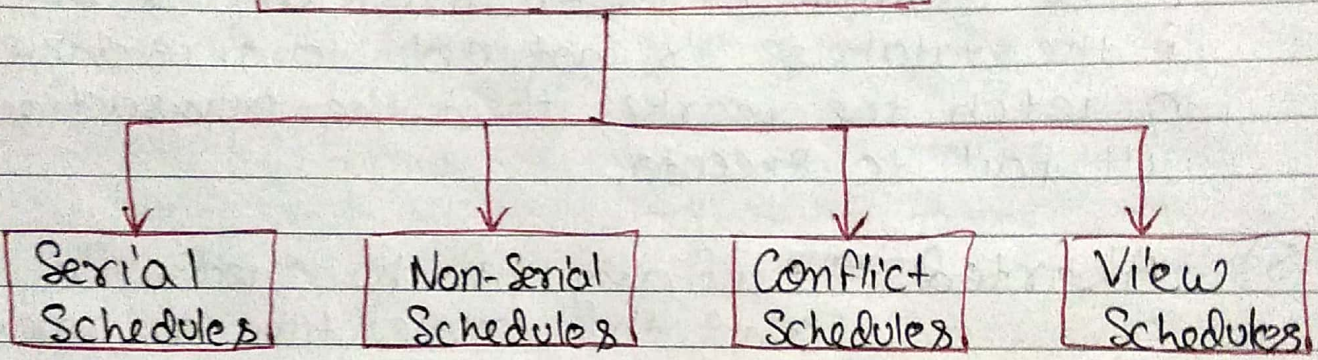 Serial
Schedules
Non-Serial
Schedules
Conflict
Schedules
View
Schedules